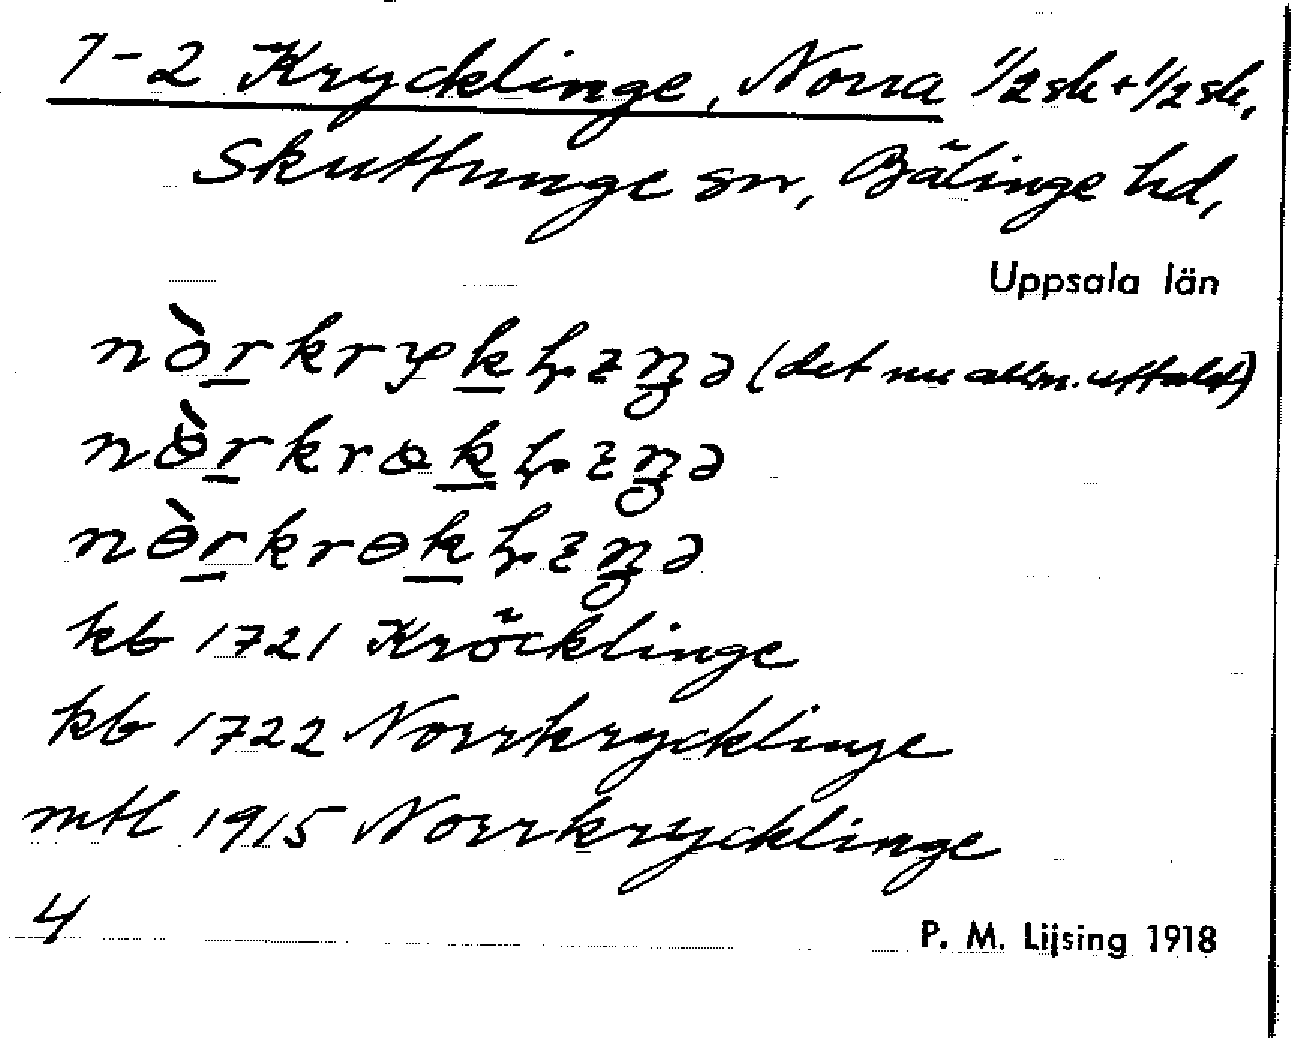 1-2 Krycklinge, Norra 1/2 sk + 1/2 sk,
Skuttunge sn, Bälinge hd,
Uppsala län
(det nu allm. uttalet)
kb 1721 Kröcklinge
kb 1722 Norrkrycklinge
mtl 1915 Norrkrycklinge
4
P. M. Lijsing 1918